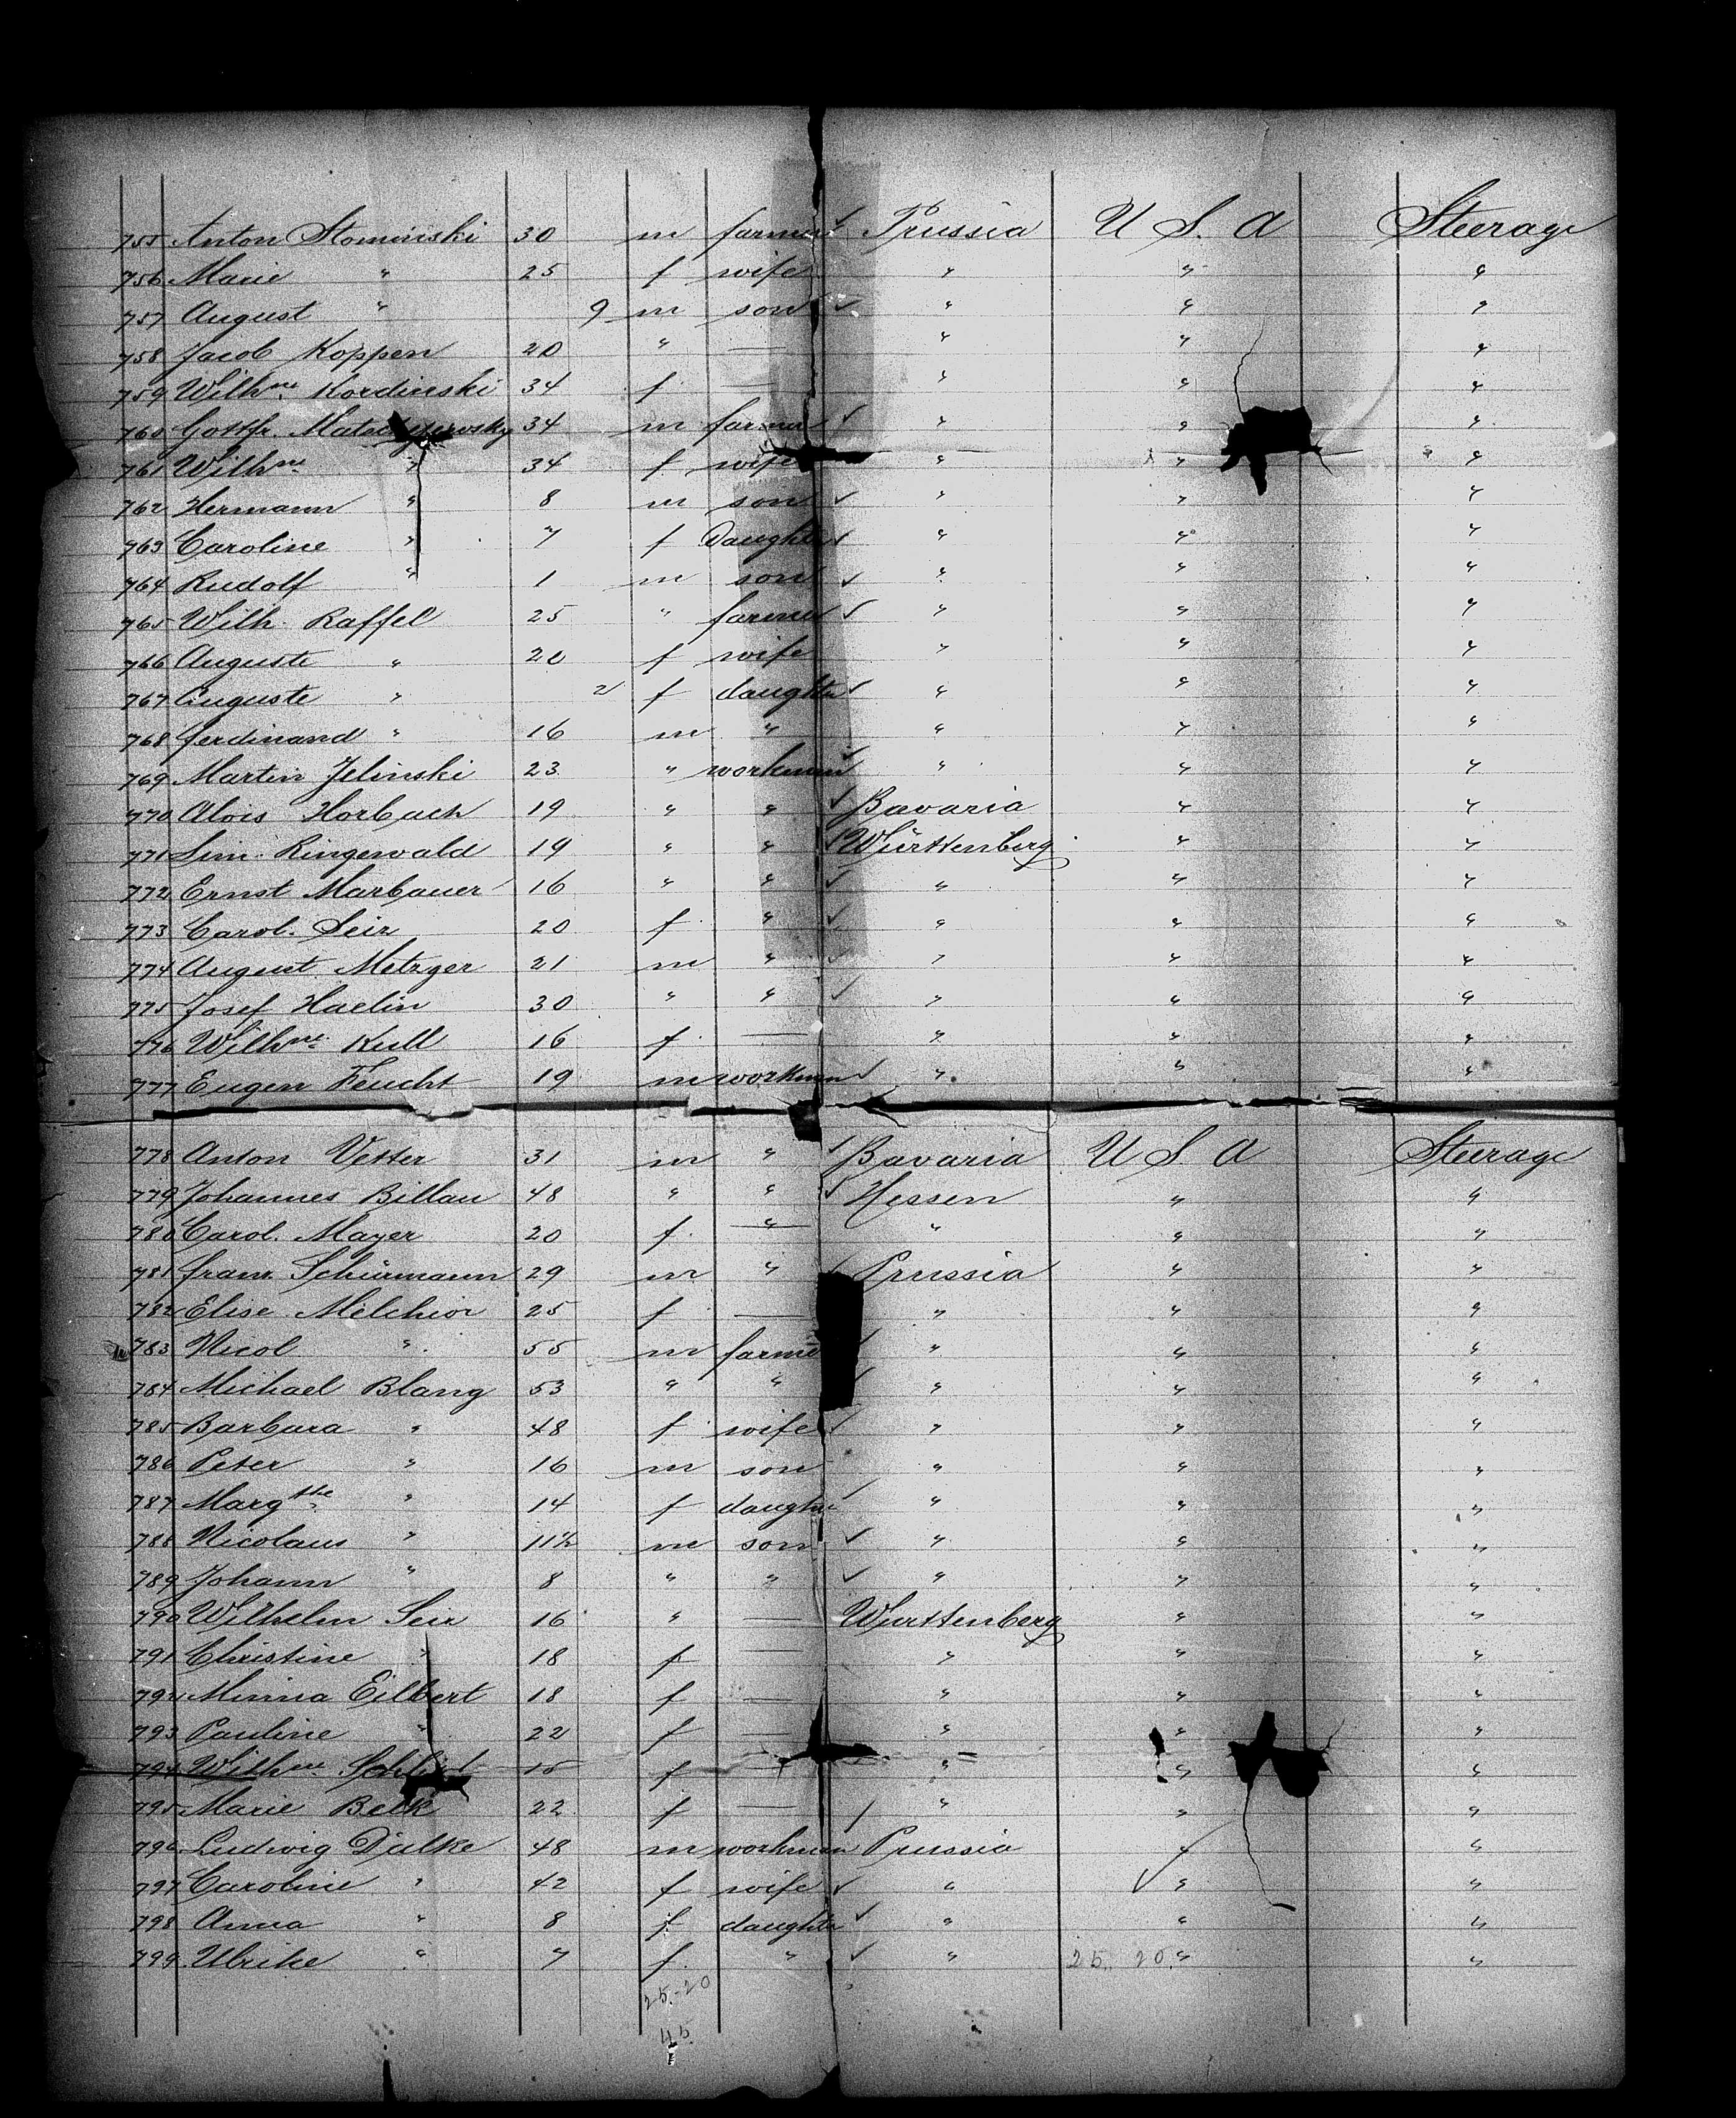 755 Anton Slominski 30 m farmer ✓ Prussia U S. A Steerage
756 Marie " 25 f wife " " "
757 August " 9 m son ✓ " " "
758 Jacob Koppen 20 " — " " "
759 Wilhne. Kordinski 34 f — " " "
760 Gottfr. 34 m farmer ✓ " " "
761 Wilhne " 34 f wife " " "
762 Hermann " 8 m son ✓ " " "
763 Caroline " 7 f Daughter ✓ " " "
764 Rudolf " 1 m son ✓ " " "
765 Wilh. Raffel 25 " farmer ✓ " " "
766 Auguste " 20 f wife " " "
767 Auguste " 2 f daughter ✓ " " "
768 Ferdinand " 16 m " " " "
769 Martin Jelinski 23 " workman ✓ " " "
770 Alois Horbach 19 " " ✓ Bavaria " "
771 Sim. Ringewald 19 " " ✓ Württenberg " "
772 Ernst Marbauer 16 " " ✓ " " "
773 Carol. Seiz 20 f " ✓ " " "
774 August Metzger 21 m " ✓ " " "
775 Josef Haelin 30 " " ✓ " " "
776 Wilhne. Kull 16 f — " " "
777 Eugen Feucht 19 m workman ✓ " " "
778 Anton Vetter 31 m " ✓ Bavaria U S. A Steerage
779 Johannes Billau 48 " " ✓ Hessen " "
780 Carol. Mayer 20 f " " " "
781 Franz Schürmann 29 m " ✓ Prussia " "
782 Elise Melchior 25 f — " " "
783 Nicol " 55 m farmer ✓ " " "
784 Michael Blang 53 " " ✓ " " "
785 Barbara " 48 f wife ✓ " " "
786 Peter " 16 m son " " "
787 Margthe " 14 f daughter ✓ " " "
788 Nicolaus " 11½ m son ✓ " " "
789 Johann " 8 " " ✓ " " "
790 Wilhelm Seiz 16 " — Wurttenberg " "
791 Christine " 18 f — " " "
792 Minna Eilbert 18 f — " " "
793 Pauline " 22 f — " " "
794 Wilhne. 15 f — " " "
795 Marie Beck 22 f — " " "
796 Ludwig Dalke 48 m workman ✓ Prussia " "
797 Caroline " 42 f wife ✓ " ✓ " "
798 Anna " 8 f daughter ✓ " " "
799 Ulrike " 7 f " ✓ " 25. 20. " "
25.-20
45